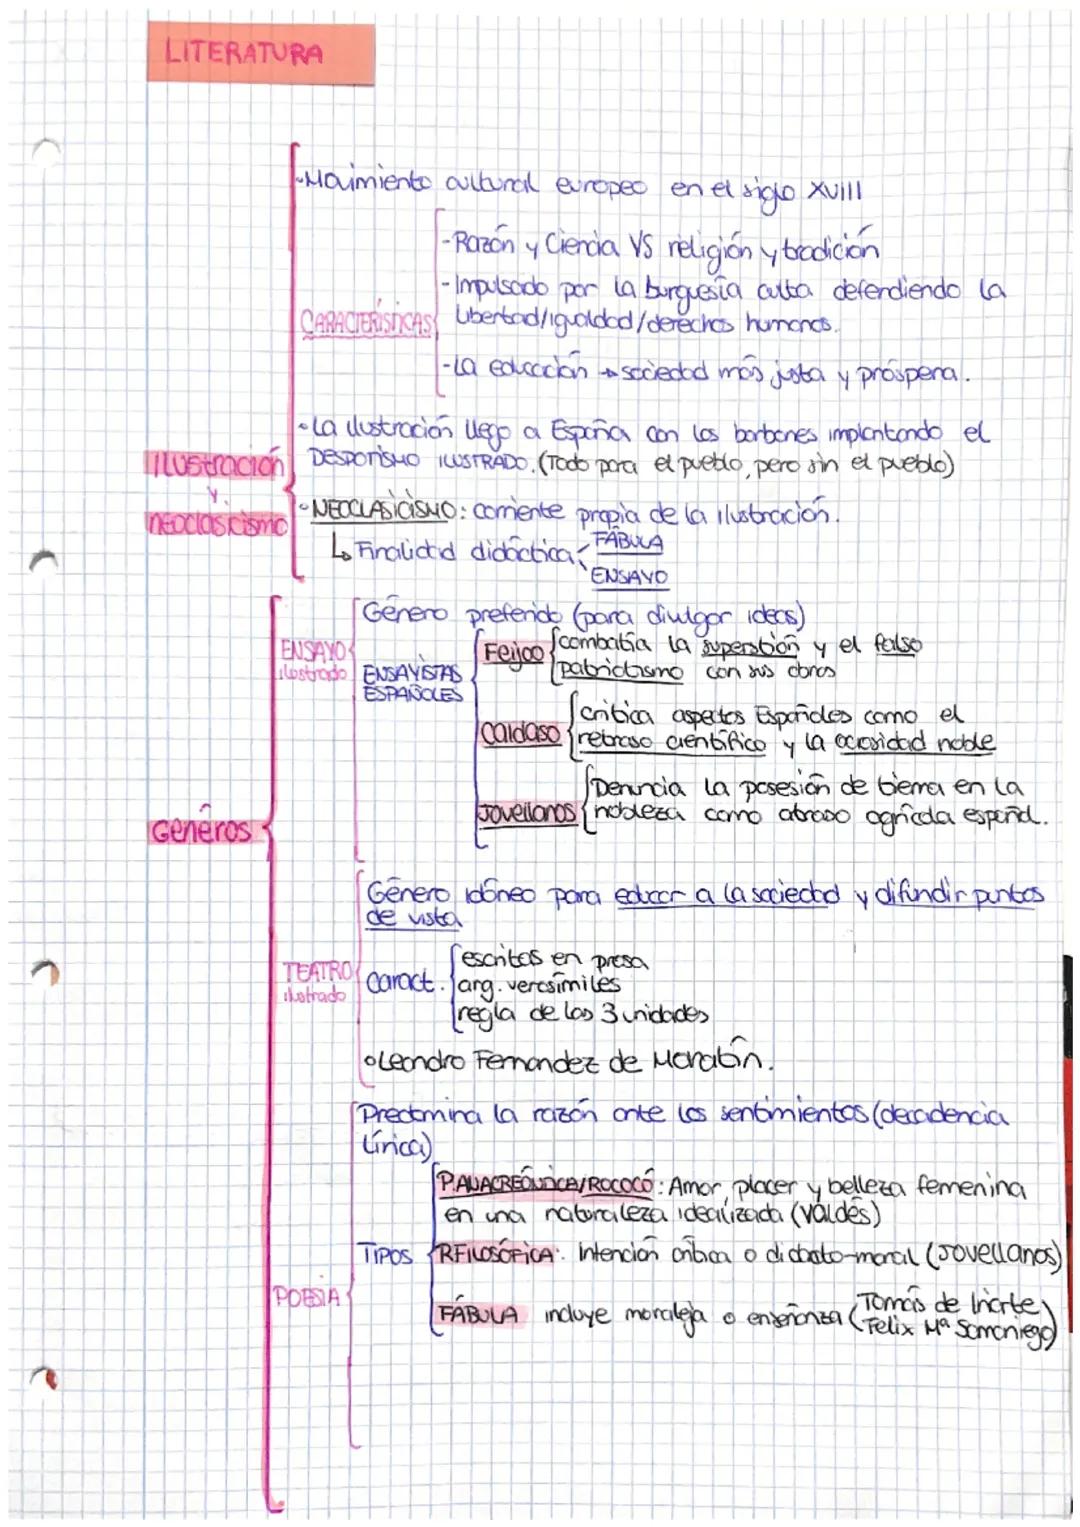 LITERATURA
-Movimiento cultural europeo en el siglo XVIII
-Razón y Ciencia VS religión y tradición
-Impulsado por la burguesía culta defendiendo la
CARACTERÍSTICAS libertad/igualdad/derechos humanos.
-La educación → sociedad más justa y próspera.
•La ilustración llego a España con los borbones implantando el
ilustración DESPOTISMO ILUSTRADO. (Todo para el pueblo, pero sin el pueblo)
y.
neoclasicismo •NEOCLASICISMO: corriente propia de la ilustración.
↳ Finalidad didáctica FÁBULA
ENSAYO
Género preferido (para divulgar ideas)
ENSAYO ilustrado
ENSAYISTAS ESPAÑOLES
Feijoo combatía la superstión y el falso
patriotismo con sus obras
Caldaso critica aspectos Españoles como el
retraso científico y la ociosidad noble
Jovellanos Denuncia la posesión de tierra en la
nobleza como atraso agrícola español.
Géneros
Género idóneo para educar a la sociedad y difundir puntos
de vista
TEATRO ilustrado
Caract. escritos en prosa
arg. verosímiles
regla de las 3 unidades
•Leandro Fernandez de Moratín.
Predomina la razón ante los sentimientos (decadencia
lírica)
P.ANACREÓNTICA/ROCOCÓ: Amor, placer y belleza femenina
en una naturaleza idealizada (Valdés)
TIPOS P.FILOSÓFICA: Intención crítica o didacto-moral (Jovellanos)
POESÍA
FÁBULA incluye moraleja o enseñanza (Tomás de Iriarte,
Felix Mª Samaniego)